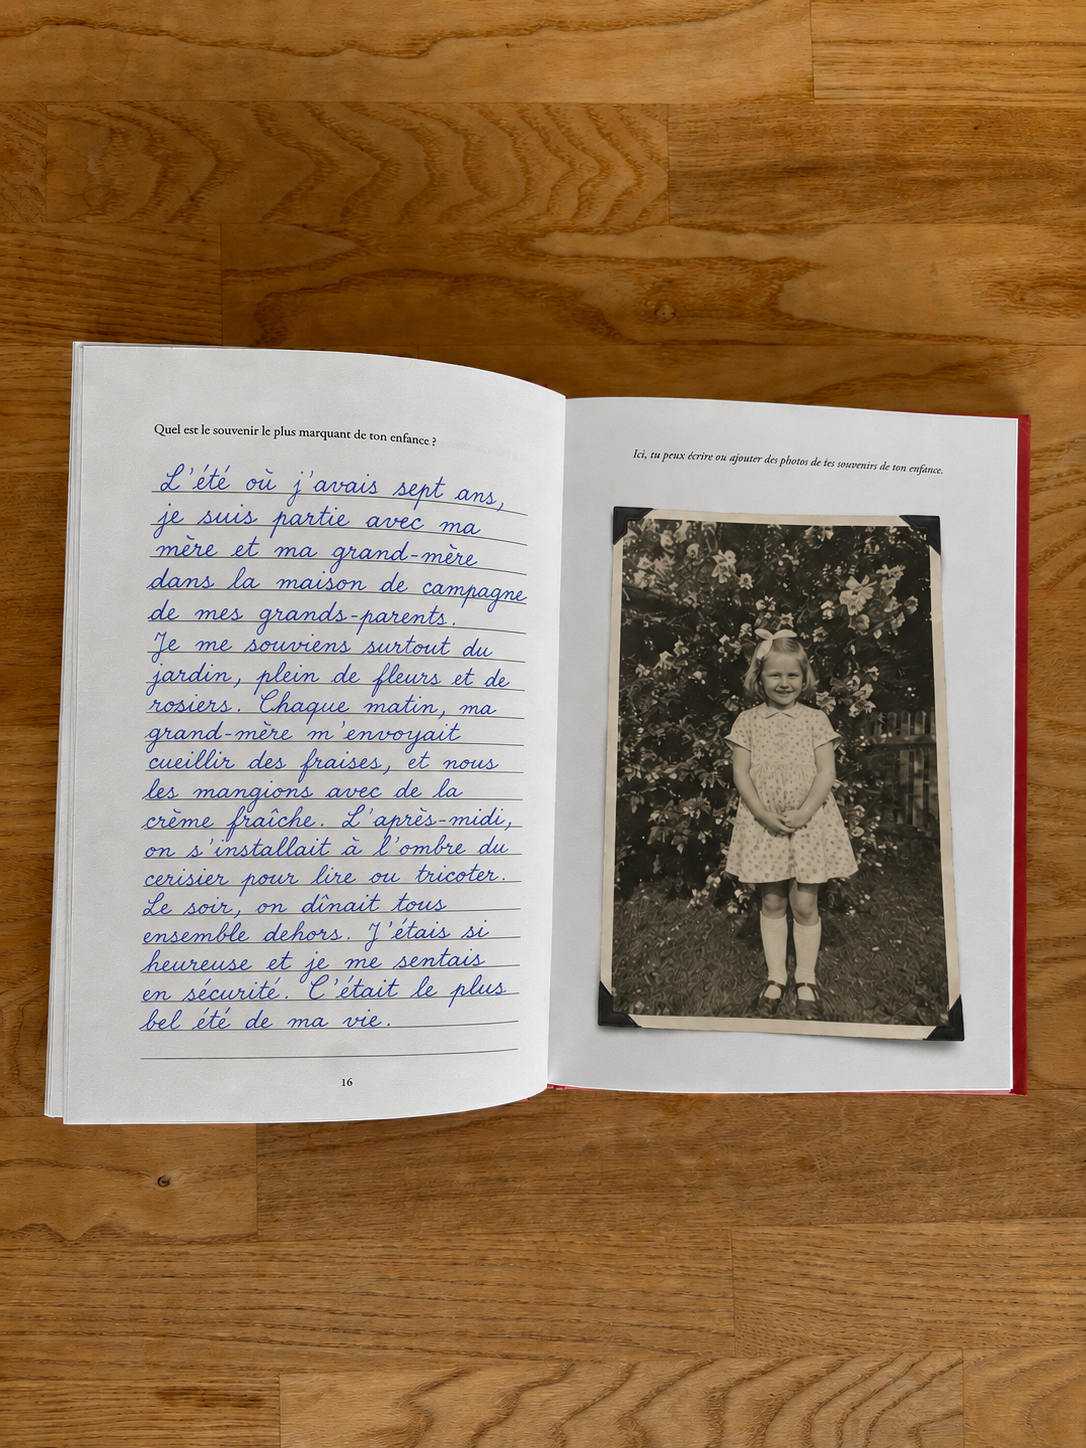 Quel est le souvenir le plus marquant de ton enfance ?
L'été où j'avais sept ans,
je suis partie avec ma
mère et ma grand-mère
dans la maison de campagne
de mes grands-parents.
Je me souviens surtout du
jardin, plein de fleurs et de
rosiers. Chaque matin, ma
grand-mère m'envoyait
cueillir des fraises, et nous
les mangions avec de la
crème fraîche. L'après-midi,
on s'installait à l'ombre du
cerisier pour lire ou tricoter.
Le soir, on dînait tous
ensemble dehors. J'étais si
heureuse et je me sentais
en sécurité. C'était le plus
bel été de ma vie.
16
Ici, tu peux écrire ou ajouter des photos de tes souvenirs de ton enfance.